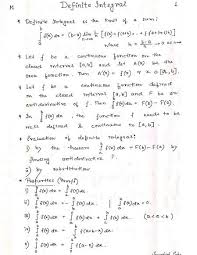 Definite Integral
Definite Integral is the limit of a sum:
∫ f(x) dx = (b-a) lim 1/n [f(a) + f(a+h) + ... + f(a+(n-1)h)]
where h = b-a/n → 0 as n→∞
Let f be a continuous function on the
closed interval [a,b] and let A(x) be the
area function. Then A'(x) = f(x) ∀ x ∈ [a,b].
Let f be a continuous function defined
on the closed interval [a,b] and F be an
antiderivative of f. Then ∫ f(x) dx = F(b) - F(a).
In ∫ f(x) dx, the function f needs to be
well defined & continuous in [a,b].
Evaluation of definite integral:
i) by the theorem ∫ f(x) dx = F(b) - F(a) by
finding antiderivative
ii) by substitution
Properties
i) ∫ f(x) dx = ∫ f(t) dt
ii) ∫ f(x) dx = - ∫ f(x) dx
iii) ∫ f(x) dx = ∫ f(x) dx + ∫ f(x) dx (a<c<b)
iv) ∫ f(x) dx = ∫ f(a+b-x) dx
v) ∫ f(x) dx = ∫ f(a-x) dx